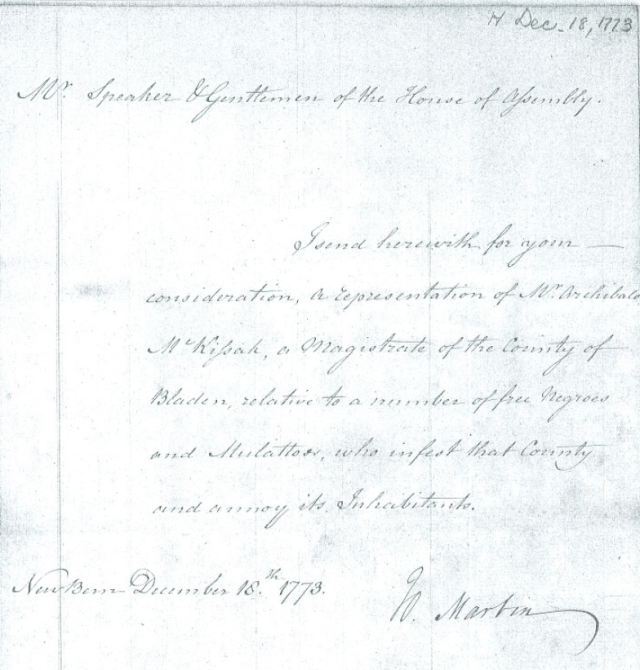 H Dec. 18, 1773
Mr. Speaker & Gentlemen of the House of Assembly.
I send herewith for your —
consideration, a representation of Mr. Archibald
McKissak, a Magistrate of the County of
Bladen, relative to a number of free Negroes
and Mulattoes, who infest that County
and annoy its Inhabitants.
New Bern December 18.th 1773.
Martin